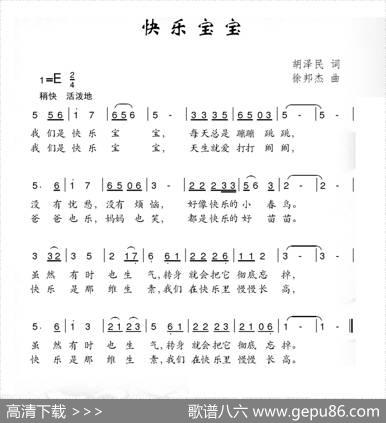 快乐宝宝
胡泽民 词
徐邦杰 曲
1=E 2/4
稍快 活泼地
5 56 | 1 7 | 656 | 5 - | 3 3 3 5 | 6 5 0 3 | 5 - | 5 - |
我们是快乐宝宝, 每天总是蹦蹦跳跳,
我们是快乐宝宝, 天生就爱打打闹闹,
5. 6 | 1 7 | 6 5 0 6 | 3 - | 2 2 2 3 3 | 5 6 3 | 2 - | 2 - |
没有忧愁,没有烦恼, 好像快乐的小春鸟。
爸爸也乐,妈妈也笑, 都是快乐的好苗苗。
3 32 | 3 5 | 2 17 | 6. 6 1 | 2 2 2 2 | 2 6 1 1 | 2 - | 2 - |
虽然有时也生气,转身就会把它彻底忘掉,
快乐是那维生素,我们在快乐里慢慢长高,
5. 6 | 1 3 | 21 23 | 5 6 1 | 2 2 2 3 | 2 1 0 6 | 1 - | 1 - |
虽然有时也生气,转身就会把它彻底忘掉。
快乐是那维生素,我们在快乐里慢慢长高。
高清下载 >>> 歌谱八六 www.gepu86.com